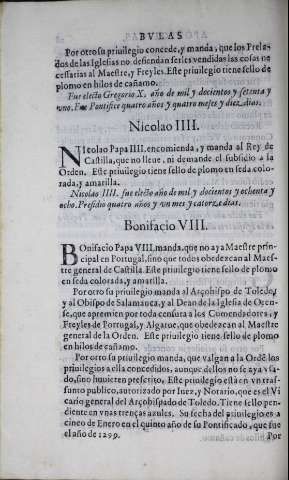 BVLAS
Por otro su priuilegio concede, y manda, que los Prela-
dos de las Iglesias no defiendan serles vendidas las cosas ne
cessarias al Maestre, y Freyles. Este priuilegio tiene sello de
plomo en hilos de cañamo.
Fue electo Gregorio X. año de mil y docientos y setenta y
vno. Fue Pontifice quatro años y quatro meses y diez dias.
Nicolao IIII.
NIcolao Papa IIII. encomienda, y manda al Rey de
Castilla, que no lleue, ni demande el subsidio a la
Orden. Este priuilegio tiene sello de plomo en seda colo-
rada, y amarilla.
Nicolao IIII. fue electo año de mil y docientos y ochenta y
ocho. Presidio quatro años y vn mes y catorze dias.
Bonifacio VIII.
BOnifacio Papa VIII. manda, que no aya Maestre prin-
cipal en Portugal, sino que todos obedezcan al Maes-
tre general de Castilla. Este priuilegio tiene sello de plomo
en seda colorada, y amarilla.
Por otro su priuilegio manda al Arçobispo de Toledo,
y al Obispo de Salamanca, y al Dean de la Iglesia de Oren-
se, que apremien por toda censura a los Comendadores, y
Freyles de Portugal, y Algarue, que obedezcan al Maestre
general de la Orden. Este priuilegio tiene sello de plomo
en hilos de cañamo.
Por otro su priuilegio manda, que valgan a la Ordẽ los
priuilegios a ella concedidos, aunque dellos no se aya vsa-
do, sino huuieren prescrito. Este priuilegio està en vn tras-
sunto publico, autorizado por Iuez, y Notario, que es el Vi
cario general del Arçobispado de Toledo. Tiene sello pen-
diente en vnas trenças azules. Su fecha del priuilegio es a
cinco de Enero en el quinto año de su Pontificado, que fue
el año de 1299.
Por